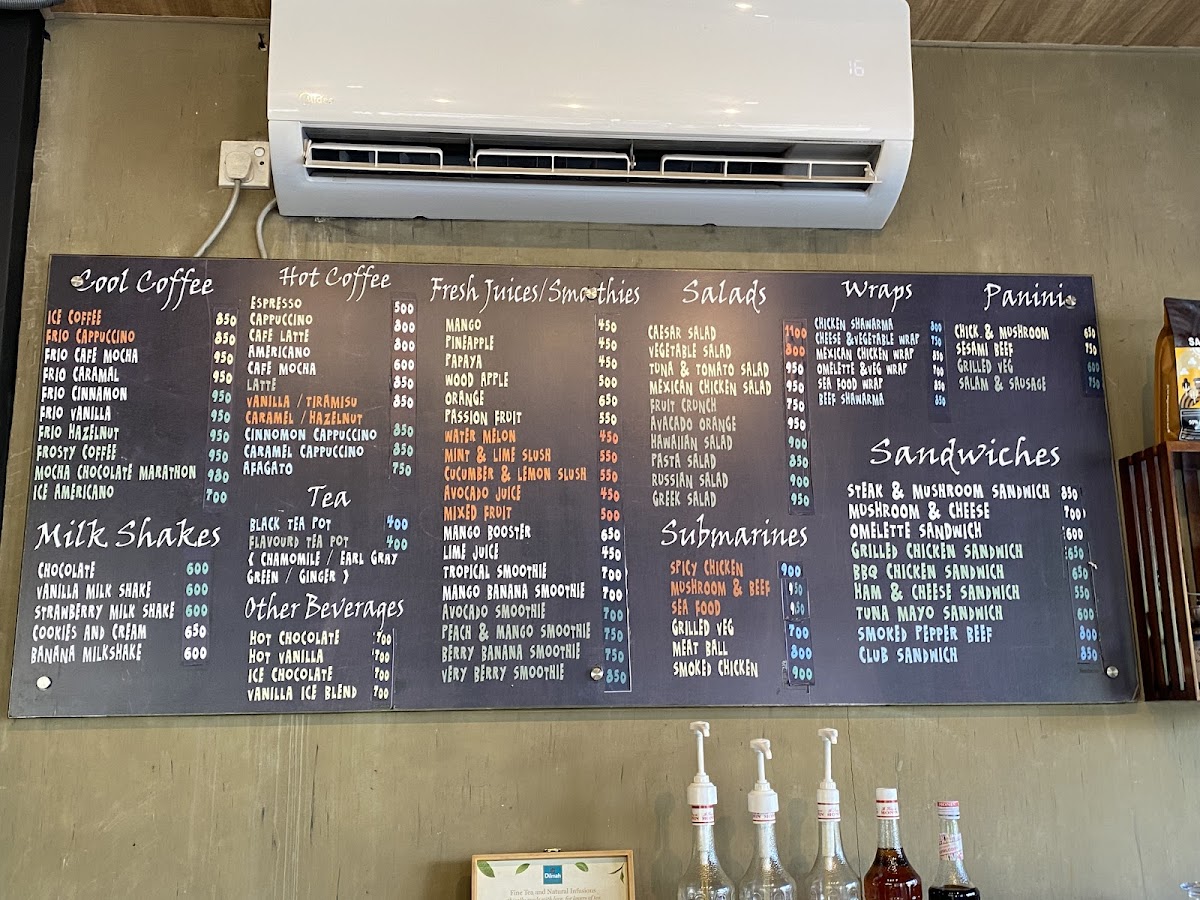 Midea
16
Cool Coffee
ICE COFFEE 850
FRIO CAPPUCCINO 850
FRIO CAFÉ MOCHA 950
FRIO CARAMAL 950
FRIO CINNAMON 950
FRIO VANILLA 950
FRIO HAZELNUT 950
FROSTY COFFEE 950
MOCHA CHOCOLATE MARATHON 980
ICE AMERICANO 700
Milk Shakes
CHOCOLATE 600
VANILLA MILK SHAKE 600
STRAWBERRY MILK SHAKE 600
COOKIES AND CREAM 650
BANANA MILKSHAKE 600
Hot Coffee
ESPRESSO 500
CAPPUCCINO 800
CAFÉ LATTE 800
AMERICANO 600
CAFÉ MOCHA 850
LATTE
VANILLA / TIRAMISU 850
CARAMEL / HAZELNUT
CINNOMON CAPPUCCINO 850
CARAMEL CAPPUCCINO 850
AFAGATO 750
Tea
BLACK TEA POT 400
FLAVOURD TEA POT 400
( CHAMOMILE / EARL GRAY
GREEN / GINGER )
Other Beverages
HOT CHOCOLATE 700
HOT VANILLA 700
ICE CHOCOLATE 700
VANILLA ICE BLEND 700
Fresh Juices/Smoothies
MANGO 450
PINEAPPLE 450
PAPAYA 450
WOOD APPLE 500
ORANGE 650
PASSION FRUIT 550
WATER MELON 450
MINT & LIME SLUSH 550
CUCUMBER & LEMON SLUSH 550
AVOCADO JUICE 450
MIXED FRUIT 500
MANGO BOOSTER 650
LIME JUICE 450
TROPICAL SMOOTHIE 700
MANGO BANANA SMOOTHIE 700
AVOCADO SMOOTHIE 700
PEACH & MANGO SMOOTHIE 750
BERRY BANANA SMOOTHIE 750
VERY BERRY SMOOTHIE 850
Salads
CAESAR SALAD 1100
VEGETABLE SALAD 800
TUNA & TOMATO SALAD 950
MEXICAN CHICKEN SALAD 950
FRUIT CRUNCH 750
AVACADO ORANGE 950
HAWAIIAN SALAD 900
PASTA SALAD 850
RUSSIAN SALAD 900
GREEK SALAD 950
Submarines
SPICY CHICKEN 900
MUSHROOM & BEEF 950
SEA FOOD 950
GRILLED VEG 700
MEAT BALL 800
SMOKED CHICKEN 900
Wraps
CHICKEN SHAWARMA 800
CHEESE &VEGETABLE WRAP 750
MEXICAN CHICKEN WRAP 850
OMELETTE &VEG WRAP 700
SEA FOOD WRAP 850
BEEF SHAWARMA 850
Panini
CHICK.& MUSHROOM 650
SESAMI BEEF 750
GRILLED VEG 600
SALAM & SAUSAGE 750
Sandwiches
STEAK & MUSHROOM SANDWICH 850
MUSHROOM & CHEESE 700
OMELETTE SANDWICH 600
GRILLED CHICKEN SANDWICH 650
BBQ CHICKEN SANDWICH 650
HAM & CHEESE SANDWICH 550
TUNA MAYO SANDWICH 600
SMOKED PEPPER BEEF 800
CLUB SANDWICH 850
Dilmah
Fine Tea and Natural Infusions